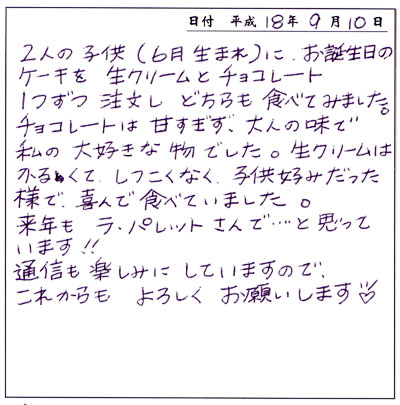 日付 平成 18年 9月 10日
2人の子供(6月生まれ)に、お誕生日の
ケーキを 生クリームとチョコレート
1つずつ 注文し、どちらも 食べてみました。
チョコレートは 甘すぎず、大人の味で
私の 大好きな 物でした。生クリームは
かるくて、しつこくなく、子供好みだった
様で、喜んで 食べていました。
来年も ラ・パレット さんで…と 思って
います!!
通信も 楽しみに していますので、
これからも よろしく お願いします♡